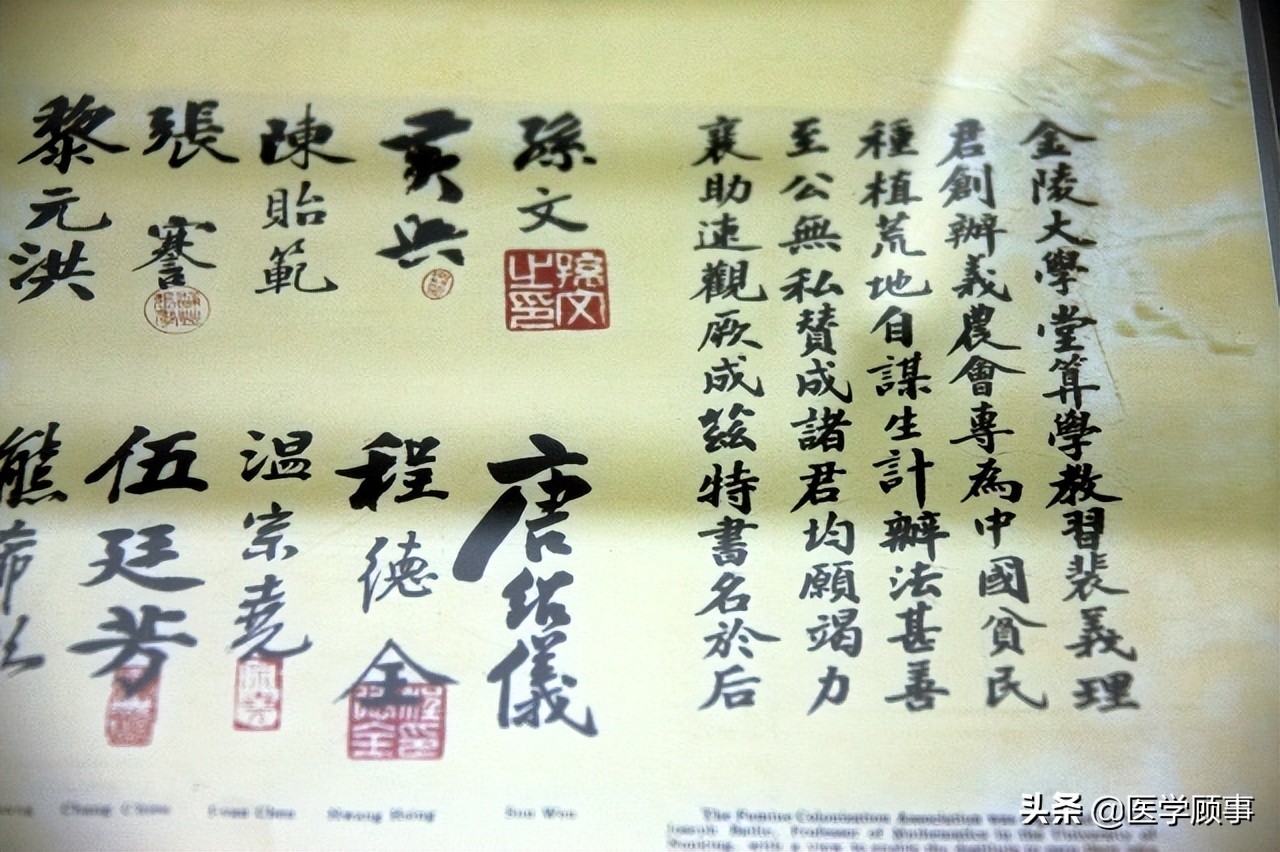 金陵大學堂算學教習裴義理
君創辦義農會專為中國貧民
種植荒地自謀生計辦法甚善
至公無私贊成諸君均願竭力
襄助速觀厥成茲特書名於后
孫文
孫文之印
黃興
陳貽範
張謇
黎元洪
唐紹儀
程德全
温宗堯
伍廷芳
熊希
Chang Chien
Ivan Chen
Hwang Hsing
Sun Wen
The Famine Colonization Association was
Joseph Bailie, Professor of Mathematics in the University of
Nanking, with a view to
头条 @医学顾事